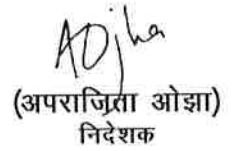 AOjha
(अपराजिता ओझा)
निदेशक